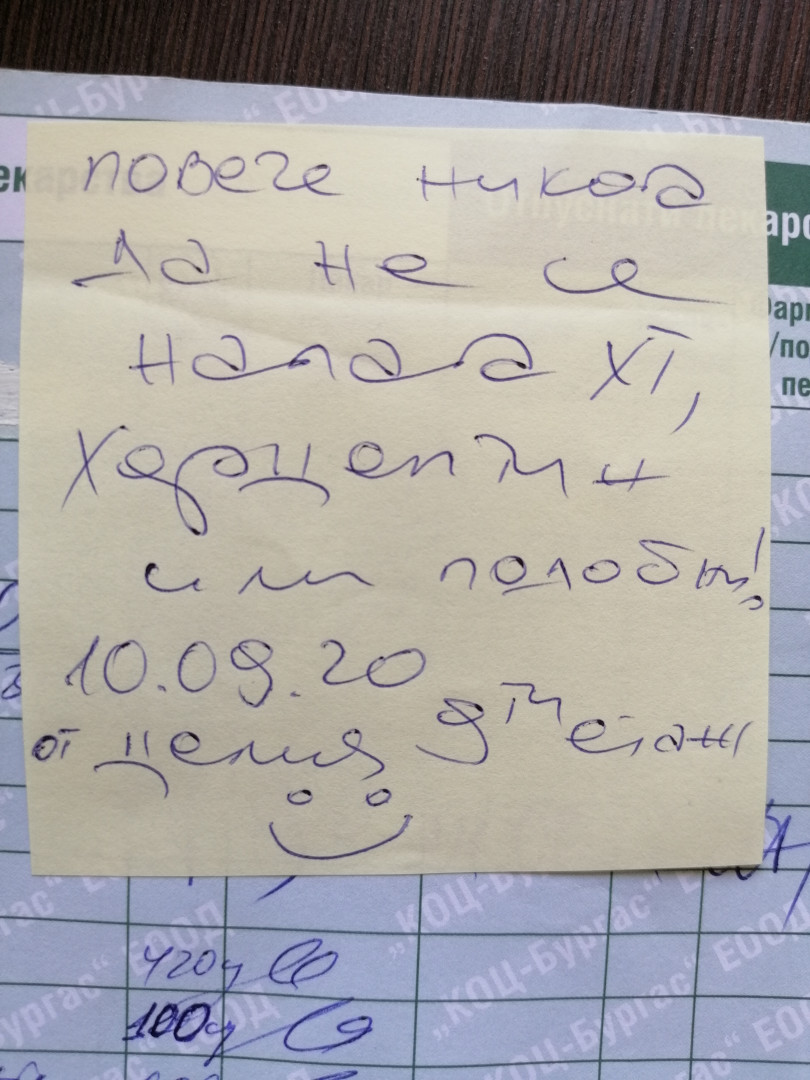 КОЦ-Бургас“ ЕООД
екарства
Отпуснати лекарс
Фарм
/по
пе
повече никога
да не се
налага ХТ,
Херцептин
или подобни!
10.09.20
от целия 9ти етаж
„КОЦ-Бургас“ ЕООД
420
100